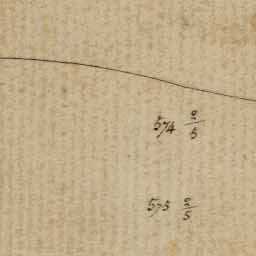 574 2/5
575 2/5